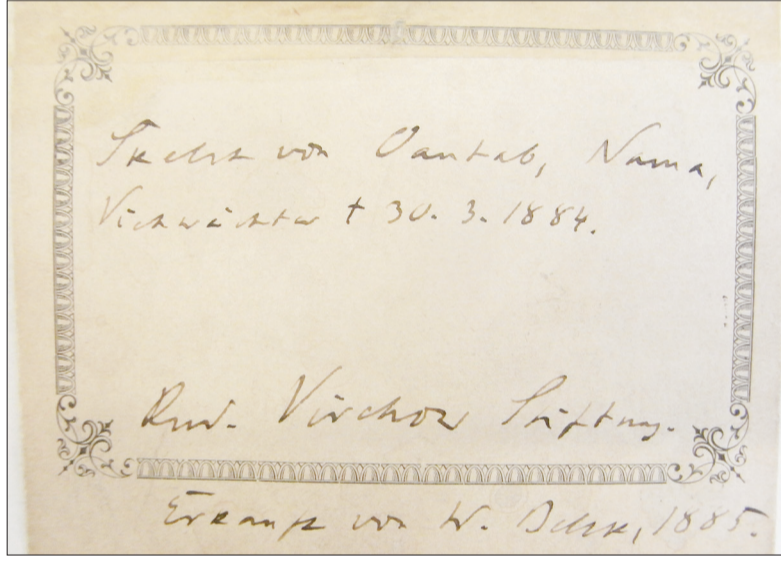 Skelet von Oantab, Nama,
Viehwächter † 30. 3. 1884.
Rud. Virchow Stiftung.
Erkauft von W. Belck, 1885.